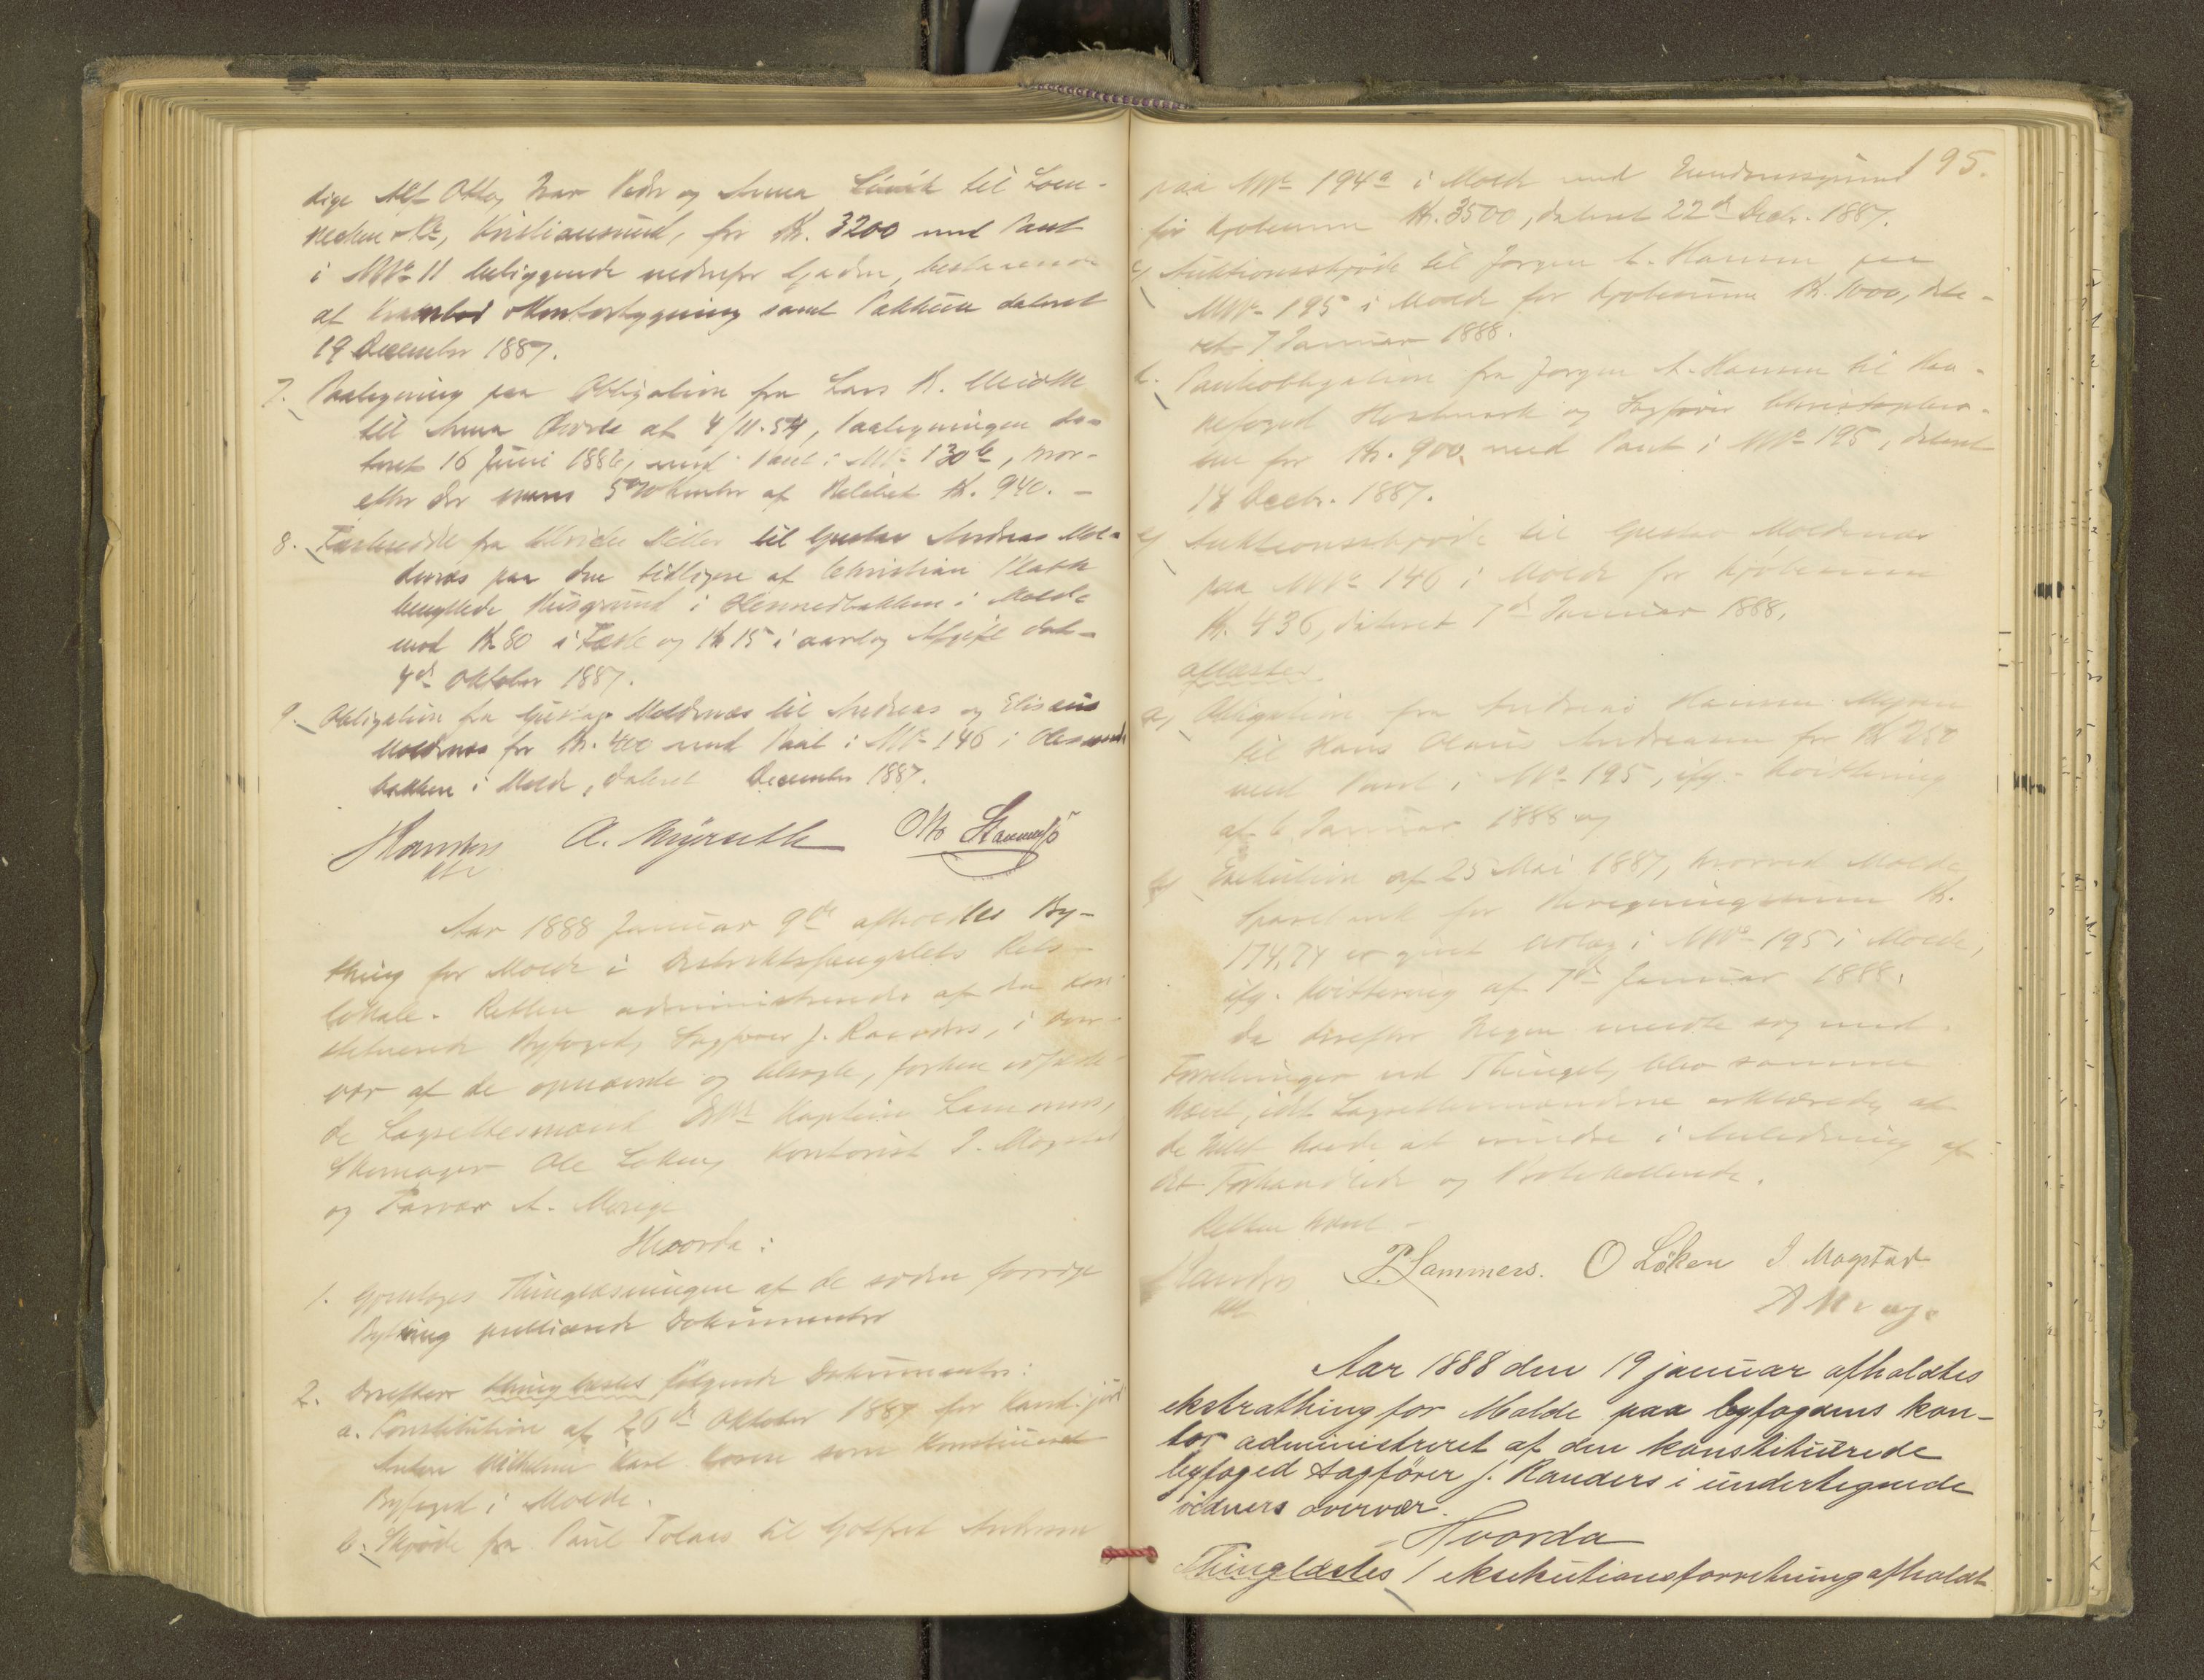 dige Alf Otto, Ivar Peder og Anna til Loen-
necken & Co, Kristiansund, for Kr. 3200 med Pant
i MNo 11 beliggende nedenfor Gaden, bestaaende
af Krambod & Kontorbygning samt Pakhus dateret
19 December 1887.
7. Paategning paa Obligation fra Lars K.
til Anna af 4/11-54, Paategningen da-
teret 16 Juni 1886, med Pant i MNo 130b, hvor-
efter der af Kr. 940. -
8. Fæsteseddel fra til Gustav Andreas Mol-
denæs paa den tidligere af Christian
benyttede Husgrund i i Molde
mod Kr 80 i Fæste og Kr 15 i aarlig Afgift dat.
4de Oktober 1887.
9. Obligation fra Gustav Moldenæs til Andreas og Elisæus
Moldenæs for Kr. 400 med Pant i MNo 146 i
bakken i Molde, dateret December 1887.
Randers A. Myrseth Otto
kst
Aar 1888 Januar 9de afholdtes By-
thing for Molde i Distriktsfængslets Rets-
lokale. Retten administreredes af den kon-
stituerede Byfoged, Sagfører J. Randers, i Over-
vær af de opnævnte og tilsagte, forhen edfæste-
de Lagrettesmænd DHrr Kaptein Lammers,
Skomager Ole Løken, Kontorist I. Magstad
og Farver A.
Hvorda:
1. Gjentoges Thinglæsningen af de siden forrige
Bything publicerede Dokumenter
2. Derefter thinglæstes følgende Dokumenter:
a. Constitution af 26de Oktober 1887 for Kand. jur.
Anton Wilhelm Karl som konstitueret
Byfoged i Molde.
b. Skjøde fra Paul Tolaas til Gotfred
195.
paa MNo 194a i Molde med Eiendomsgrund
for Kjøbesum Kr. 3500, dateret 22de Decbr. 1887.
c) Auktionsskjøde til Jørgen A. Hansen paa
MNo 195 i Molde for Kjøbesum Kr. 1000, date-
ret 7 Januar 1888.
d. Pantobligation fra Jørgen A. Hansen til Kaa-
nefoged og Sagfører Christophers-
en for Kr. 900 med Pant i MNo 195, dateret
14 Decbr. 1887.
e) Auktionsskjøde til Gustav Moldenæs
paa MNo 146 i Molde for Kjøbesum
Kr. 436, dateret 7de Januar 1888.
aflæstes
a) Obligation fra Andreas Hansen Myren
til Hans Olaus Andreasen for Kr 250
med Pant i MNo 195, ifg. Kvittering
af 6 Januar 1888 og
b) Exekution af 25 Mai 1887, hvorved Molde
Sparebank for Kr.
174,74 er givet Udlæg i MNo 195 i Molde,
ifg. Kvittering af 7de Januar 1888.
Da derefter Ingen meldte sig med
Forretninger ved Thinget, blev samme
hævet, idet Lagrettesmændene erklærede, at
de Intet havde at erindre i Anledning af
det Forhandlede og Protokollerede.
Retten hævet -
Randers P. Lammers. O Løken I Magstad
kst
Aar 1888 den 19 januar afholdtes
ekstrathing for Molde paa byfogdens kon-
tor administreret af den konstituerede
byfoged sagfører J. Randers i undertegnede
vidners overvær.
Hvorda
Thinglæstes 1 eksekutionsforretning afholdt